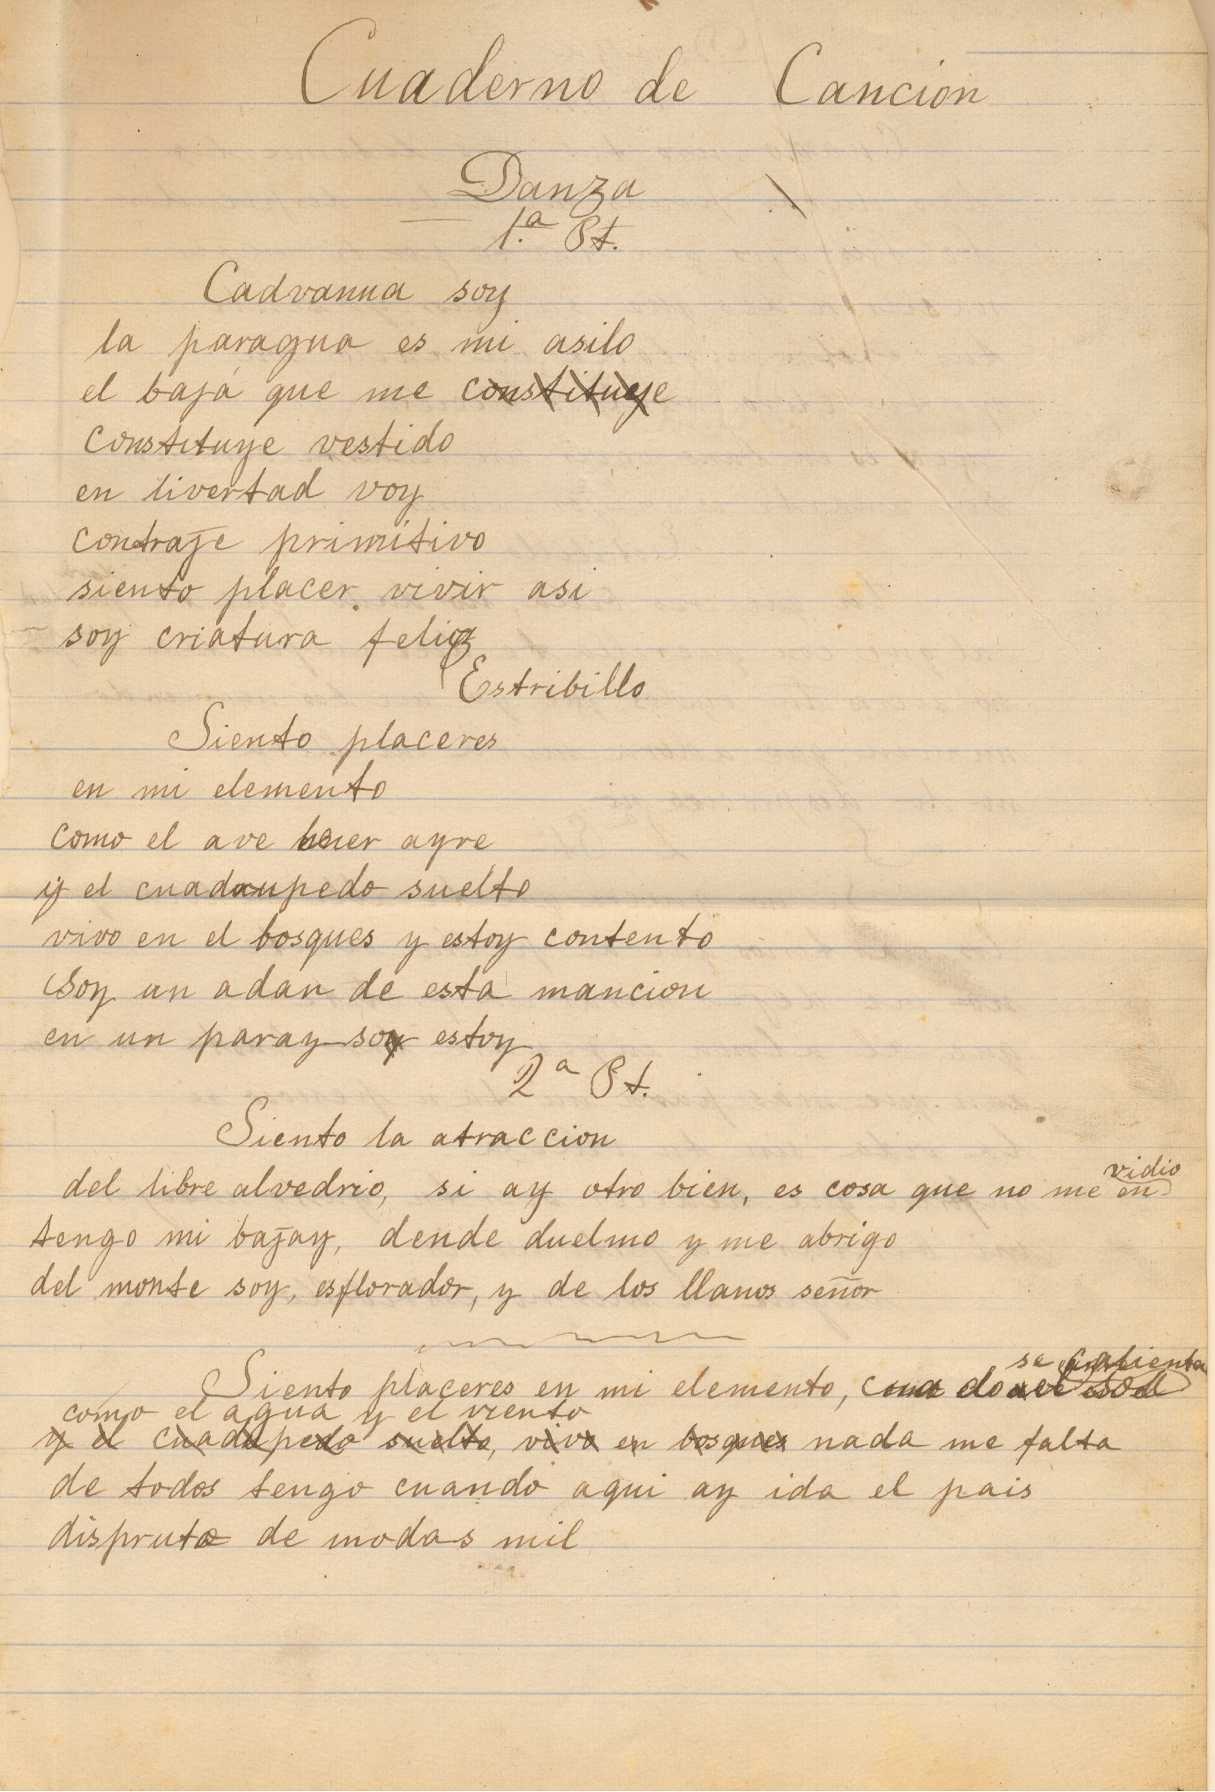 Cuaderno de Cancion
Danza
1.ª Pt.
Cadvanua soy
la paragua es mi asilo
el bajá que me constituye
constituye vestido
en livertad voy
contraje primitivo
siento placer vivir asi
soy criatura feliz
Estribillo
Siento placeres
en mi elemento
como el ave ayre
y el cuadaupedo suelto
vivo en el bosques y estoy contento
Soy un adan de esta mancion
en un paray so estoy
2ª Pt.
Siento la atraccion
vidio
del libre alvedrio, si ay otro bien, es cosa que no me en
tengo mi bajay, dende duelmo y me abrigo
del monte soy, esflorador, y de los llanos señor
se
Siento placeres en mi elemento,
como el agua y el viento
y el cuadupedo suelto, vivo en bosques nada me falta
de todos tengo cuando aqui ay ida el pais
dispruto de modas mil